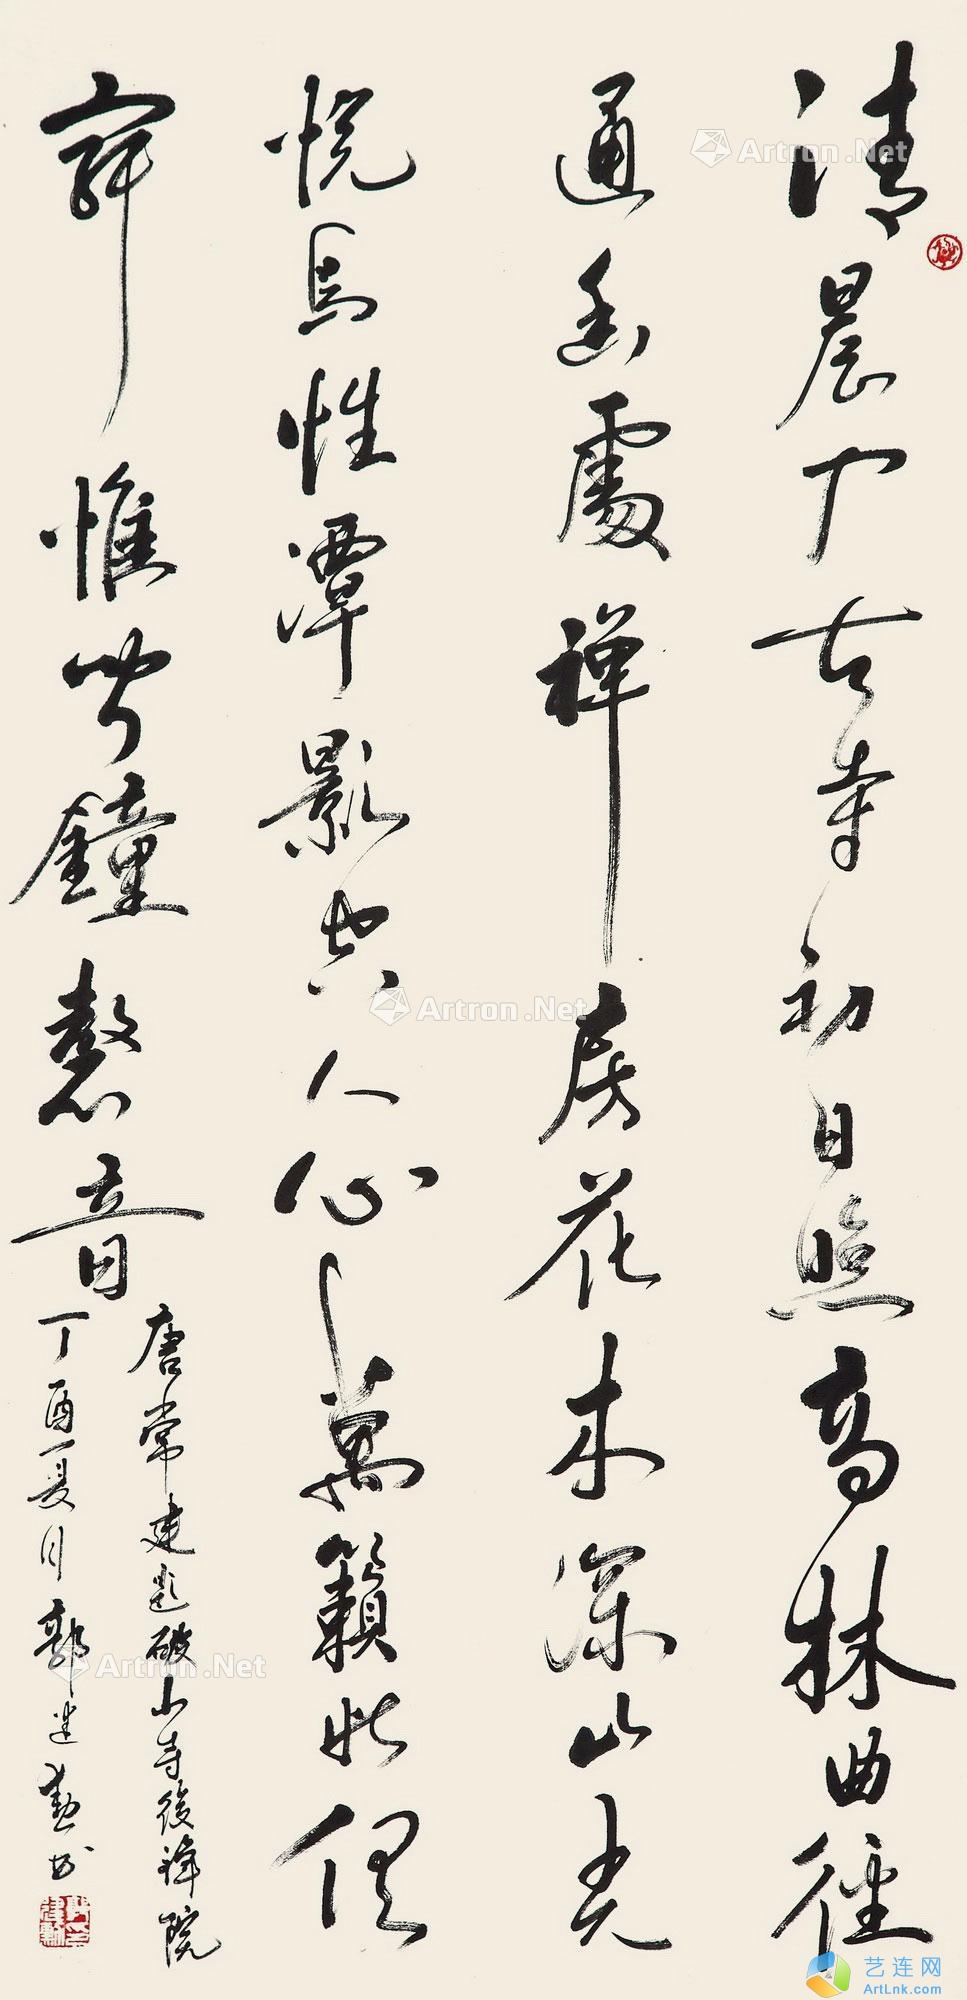 清晨入古寺初日照高林曲徑
通幽處禪房花木深山光
悦鳥性潭影空人心萬籟此俱
寂惟聞鐘磬音
唐常建題破山寺後禪院
丁酉夏月郭建勳書
Artron.Net
Artron.Net
Artron.Net
艺连网
ArtLnk.com